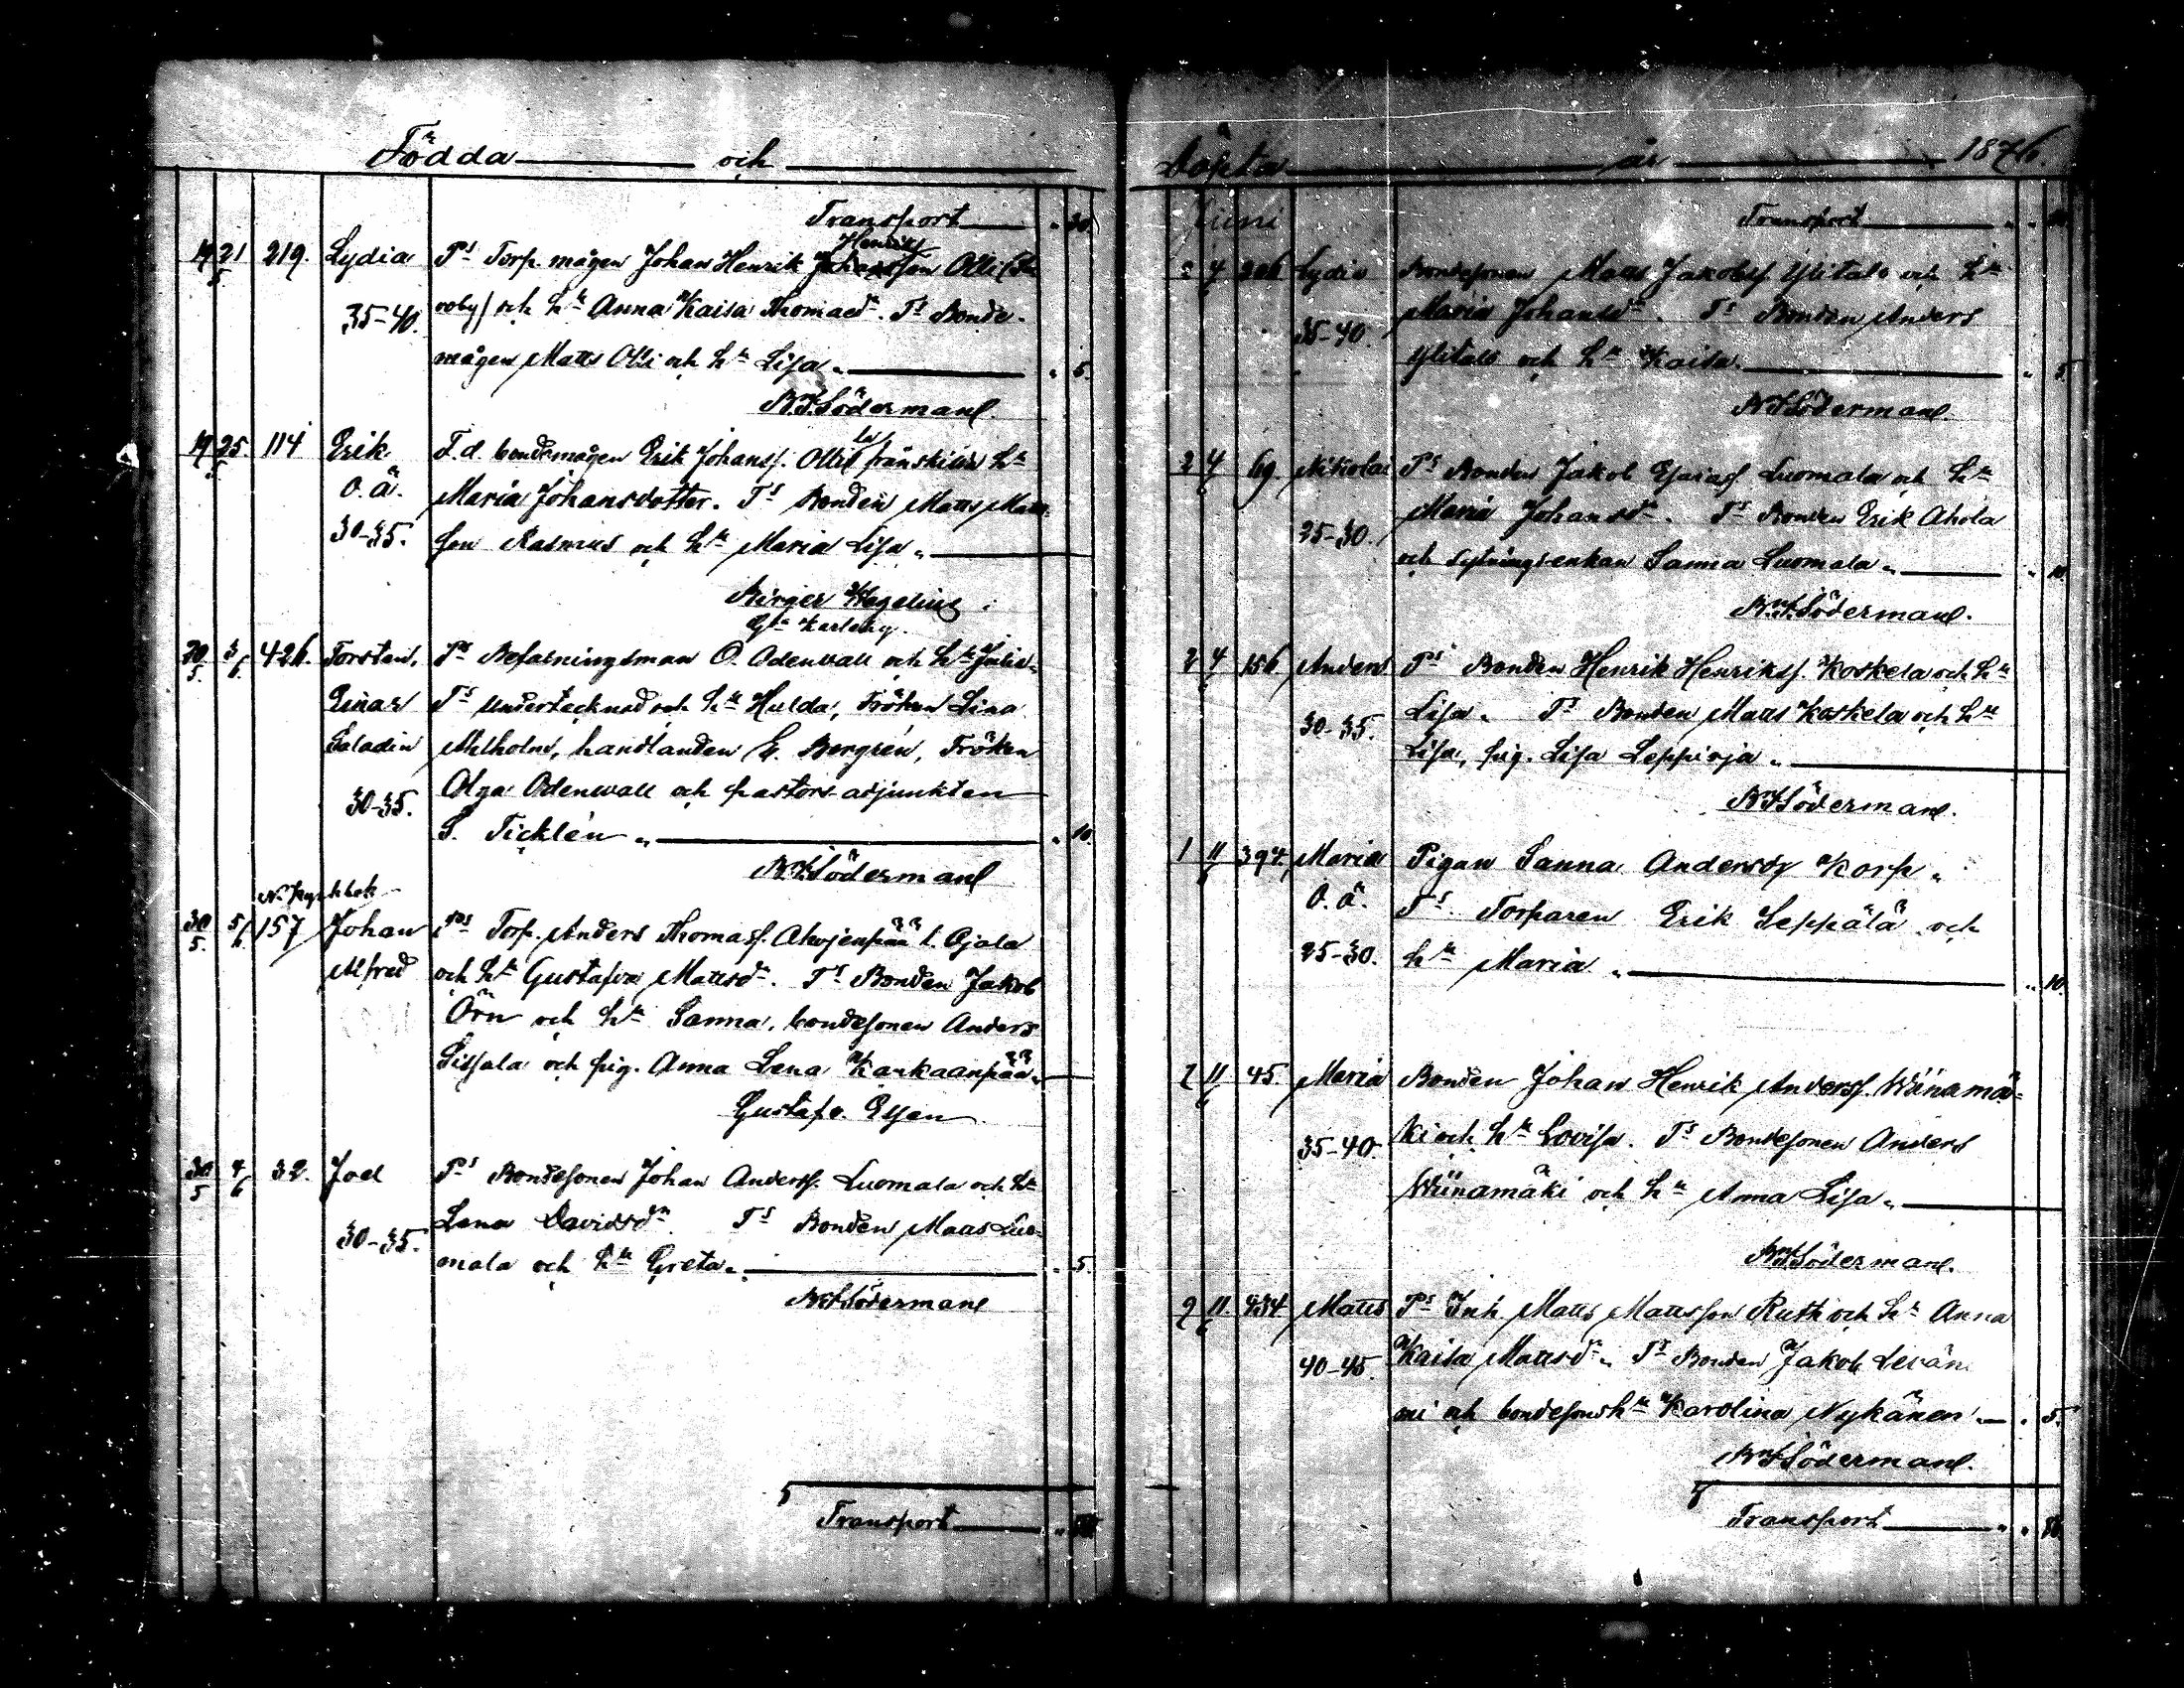 Födda och
Transport " 30
19 21/5 219. Lydia Ps Torp. mågen Johan Henrik Henriks Johansson Olli
35-40. och hu Anna Kaisa Thomasdr. Ts Bonde-
mågen Matts Olli och hu Lisa " 5.
B.W. Söderman.
19 25/5 114 Erik F.d. bondemågen Erik Johanss. Olli frånskilda hu
O.ä. Maria Johansdotter. Ts Bonden Matts Matts-
30-35. son Rasmus och hu Maria Lisa "
Birger Hegelius
Gla Karleby.
30/5 3/6 426. Torsten, Ps Befalningsman O. Odenwall och hu Julia
Einar Ts Undertecknad och hu Hulda, Fröken Lina
Saladin Ahlholm, handlanden E. Bergrén, Fröken
Olga Odenwall och pastors adjunkten
30-35. S. Ticklén " 10.
Söderman
30/5 5/6 157 Johan Ps Torp. Anders Thomass. Ahvjenpää l. Ojala
Alfred och hu Gustafva Mattsdr. Ts Bonden Jakob
Örn och hu Sanna, bondesonen Anders
Sissala och pig. Anna Lena Kankaanpää "
Gustaf Essen
30/5 4/6 32. Joel Ps Bondesonen Johan Anderss. Luomala och hu
Lena Davidsdr Ts Bonden Matts Luo-
30-35. mala och hu Greta " 5.
Söderman
Transport
Döpta år 1876.
Juni
Transport
2 4 206 Lydia Bondesonen Matts Jakobss. Ylitalo och hu
Maria Johansdr. Ts Bonden Anders
35-40. Ylitalo och hu Kaisa. " 5
Söderman
2 4 69 Nikolai Ps Bonden Jakob Esaiass. Luomala och hu
Maria Johansdr. Ts Bonden Erik Ahola
25-30. och sytningsenkan Sanna Luomala " 10
Söderman.
2 4 156 Anders Ps Bonden Henrik Henrikss. Koskela och hu
Lisa. Ts Bonden Matts Koskela och hu
30-35. Lisa, pig. Lisa Leppioja "
Söderman.
1 11/6 394. Maria Pigan Sanna Andersdr Korp "
O.ä. Ts. Torparen Erik Seppälä och
25-30. hu Maria " 10.
2 11/6 45. Maria Bonden Johan Henrik Anderss. Wiinamä-
ki och hu Lovisa. Ts Bondesonen Anders
35-40. Wiinamäki och hu Anna Lisa "
Söderman.
9 11/6 434 Matts Ps Inh. Matts Mattsson Ruth och hu Anna
Kaisa Mattsdr. Ts Bonden Jakob Levän
40-45. mi och bondesons hu Karolina Nykänen " 5.
Söderman.
Transport